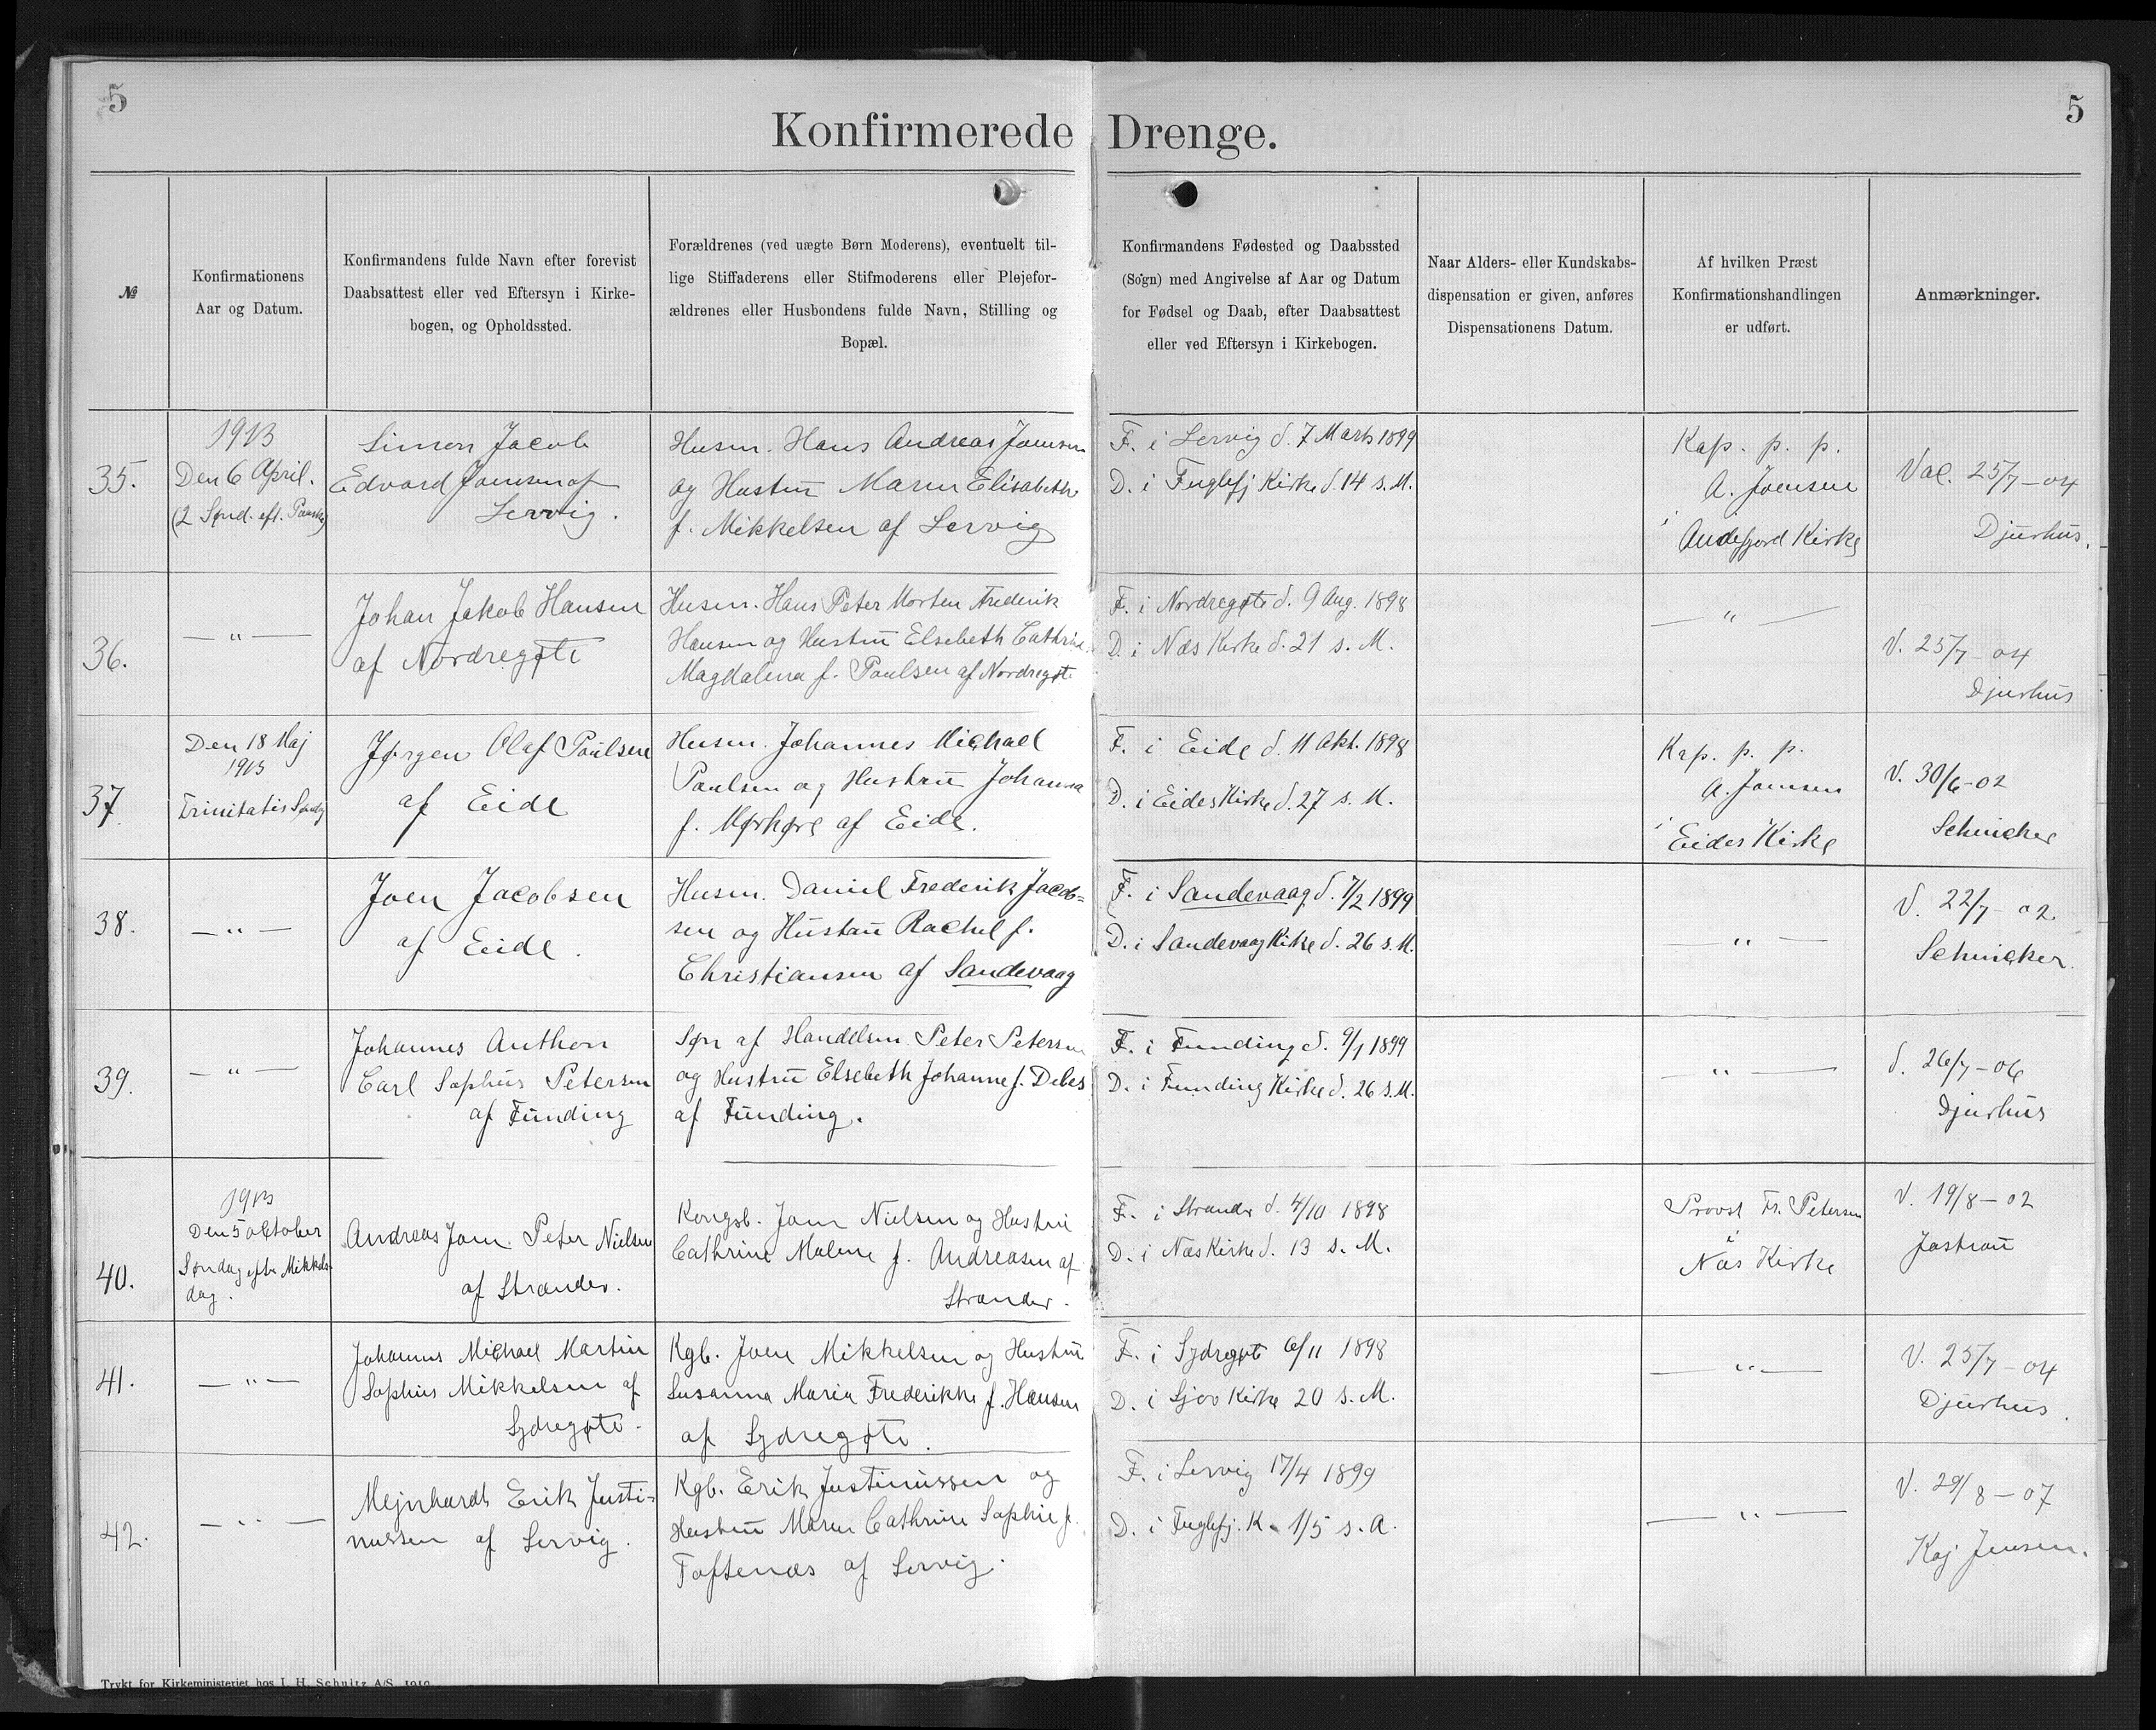 5
5
Konfirmerede Drenge.
№
Konfirmationens
Aar og Datum.
Konfirmandens fulde Navn efter forevist
Daabsattest eller ved Eftersyn i Kirke-
bogen, og Opholdssted.
Forældrenes (ved uægte Børn Moderens), eventuelt til-
lige Stiffaderens eller Stifmoderens eller Plejefor-
ældrenes eller Husbondens fulde Navn, Stilling og
Bopæl.
Konfirmandens Fødested og Daabssted
(Sogn) med Angivelse af Aar og Datum
for Fødsel og Daab, efter Daabsattest
eller ved Eftersyn i Kirkebogen.
Naar Alders- eller Kundskabs-
dispensation er given, anføres
Dispensationens Datum.
Af hvilken Præst
Konfirmationshandlingen
er udført.
Anmærkninger.
35.
1913
Den 6 April.
(2 Sønd. eft. Paaske)
Simon Jacob
Edvard Joensen af
Lervig.
Husm. Hans Andreas Joensen
og Hustru Maren Elisabeth
f. Mikkelsen af Lervig
F. i Lervig d. 7 Marts 1899
D. i Fuglefj Kirke d. 14 s. M.
Kap. p. p.
A. Joensen
i
Andefjord Kirke
Vac. 25/7-04
Djurhus.
36.
—"—
Johan Jakob Hansen
af Nordregøte
Husm. Hans Peter Morten Frederik
Hansen og Hustru Elsebeth Cathrine
Magdalena f. Poulsen af Nordregøte
F. i Nordregøte d. 9 Aug. 1898
D. i Næs Kirke d. 21 s. M.
—"—
V. 25/7-04
Djurhus
37.
Den 18 Maj
1913
Trinitatis Søndag
Jørgen Olaf Poulsen
af Eide
Husm. Johannes Michael
Poulsen og Hustru Johanna
f. Mørkøre af Eide.
F. i Eide d. 11 Okt. 1898
D. i Eides Kirke d. 27 s. M.
Kap. p. p.
A. Joensen
i
Eides Kirke
V. 30/6-02
Schneider
38.
—"—
Joen Jacobsen
af Eide.
Husm. Daniel Frederik Jacob=
sen og Hustru Rachel f.
Christiansen af Sandevaag
F. i Sandevaag d. 7/2 1899
D. i Sandevaag Kirke d. 26 s. M.
—"—
V. 22/7-02
39.
—"—
Johannes Anthon
Carl Sophus Petersen
af Funding
Søn af Handelsm. Peter Petersen
og Hustru Elsebeth Johanne f. Debes
af Funding.
F. i Funding d. 9/1 1899
D. i Funding Kirke d. 26 s. M.
—"—
V. 26/7-06
Djurhus
40.
1913
Den 5 October
Søndag efter Mikkels-
dag.
Andreas Joen Peter Nielsen
af Strander.
Kongsb. Joen Nielsen og Hustru
Cathrine Malene f. Andreasen af
Strander.
F. i Strander d. 4/10 1898
D. i Næs Kirke d. 13 s. M.
Provst Fr. Petersen
i
Næs Kirke
V. 19/8-02
Jastrau
41.
—"—
Johannes Michael Martin
Sophus Mikkelsen af
Sydregøte.
Kgb. Joen Mikkelsen og Hustru
Susanna Maria Frederikke f. Hansen
af Sydregøte.
F. i Sydregøte 6/11 1898
D. i Sjov Kirke 20 s. M.
—"—
V. 25/7-04
Djurhus.
42.
—"—
Mejnhardt Erik Justi-
nussen af Lervig.
Kgb. Erik Justinussen og
Hustru Maren Cathrine Sophie f.
Toftenæs af Lervig.
F. i Lervig 17/4 1899
D. i Fuglefj. K. 1/5 s. A.
—"—
V. 29/8-07
Kaj Jensen.
Trykt for Kirkeministeriet hos J. H. Schultz A/S.